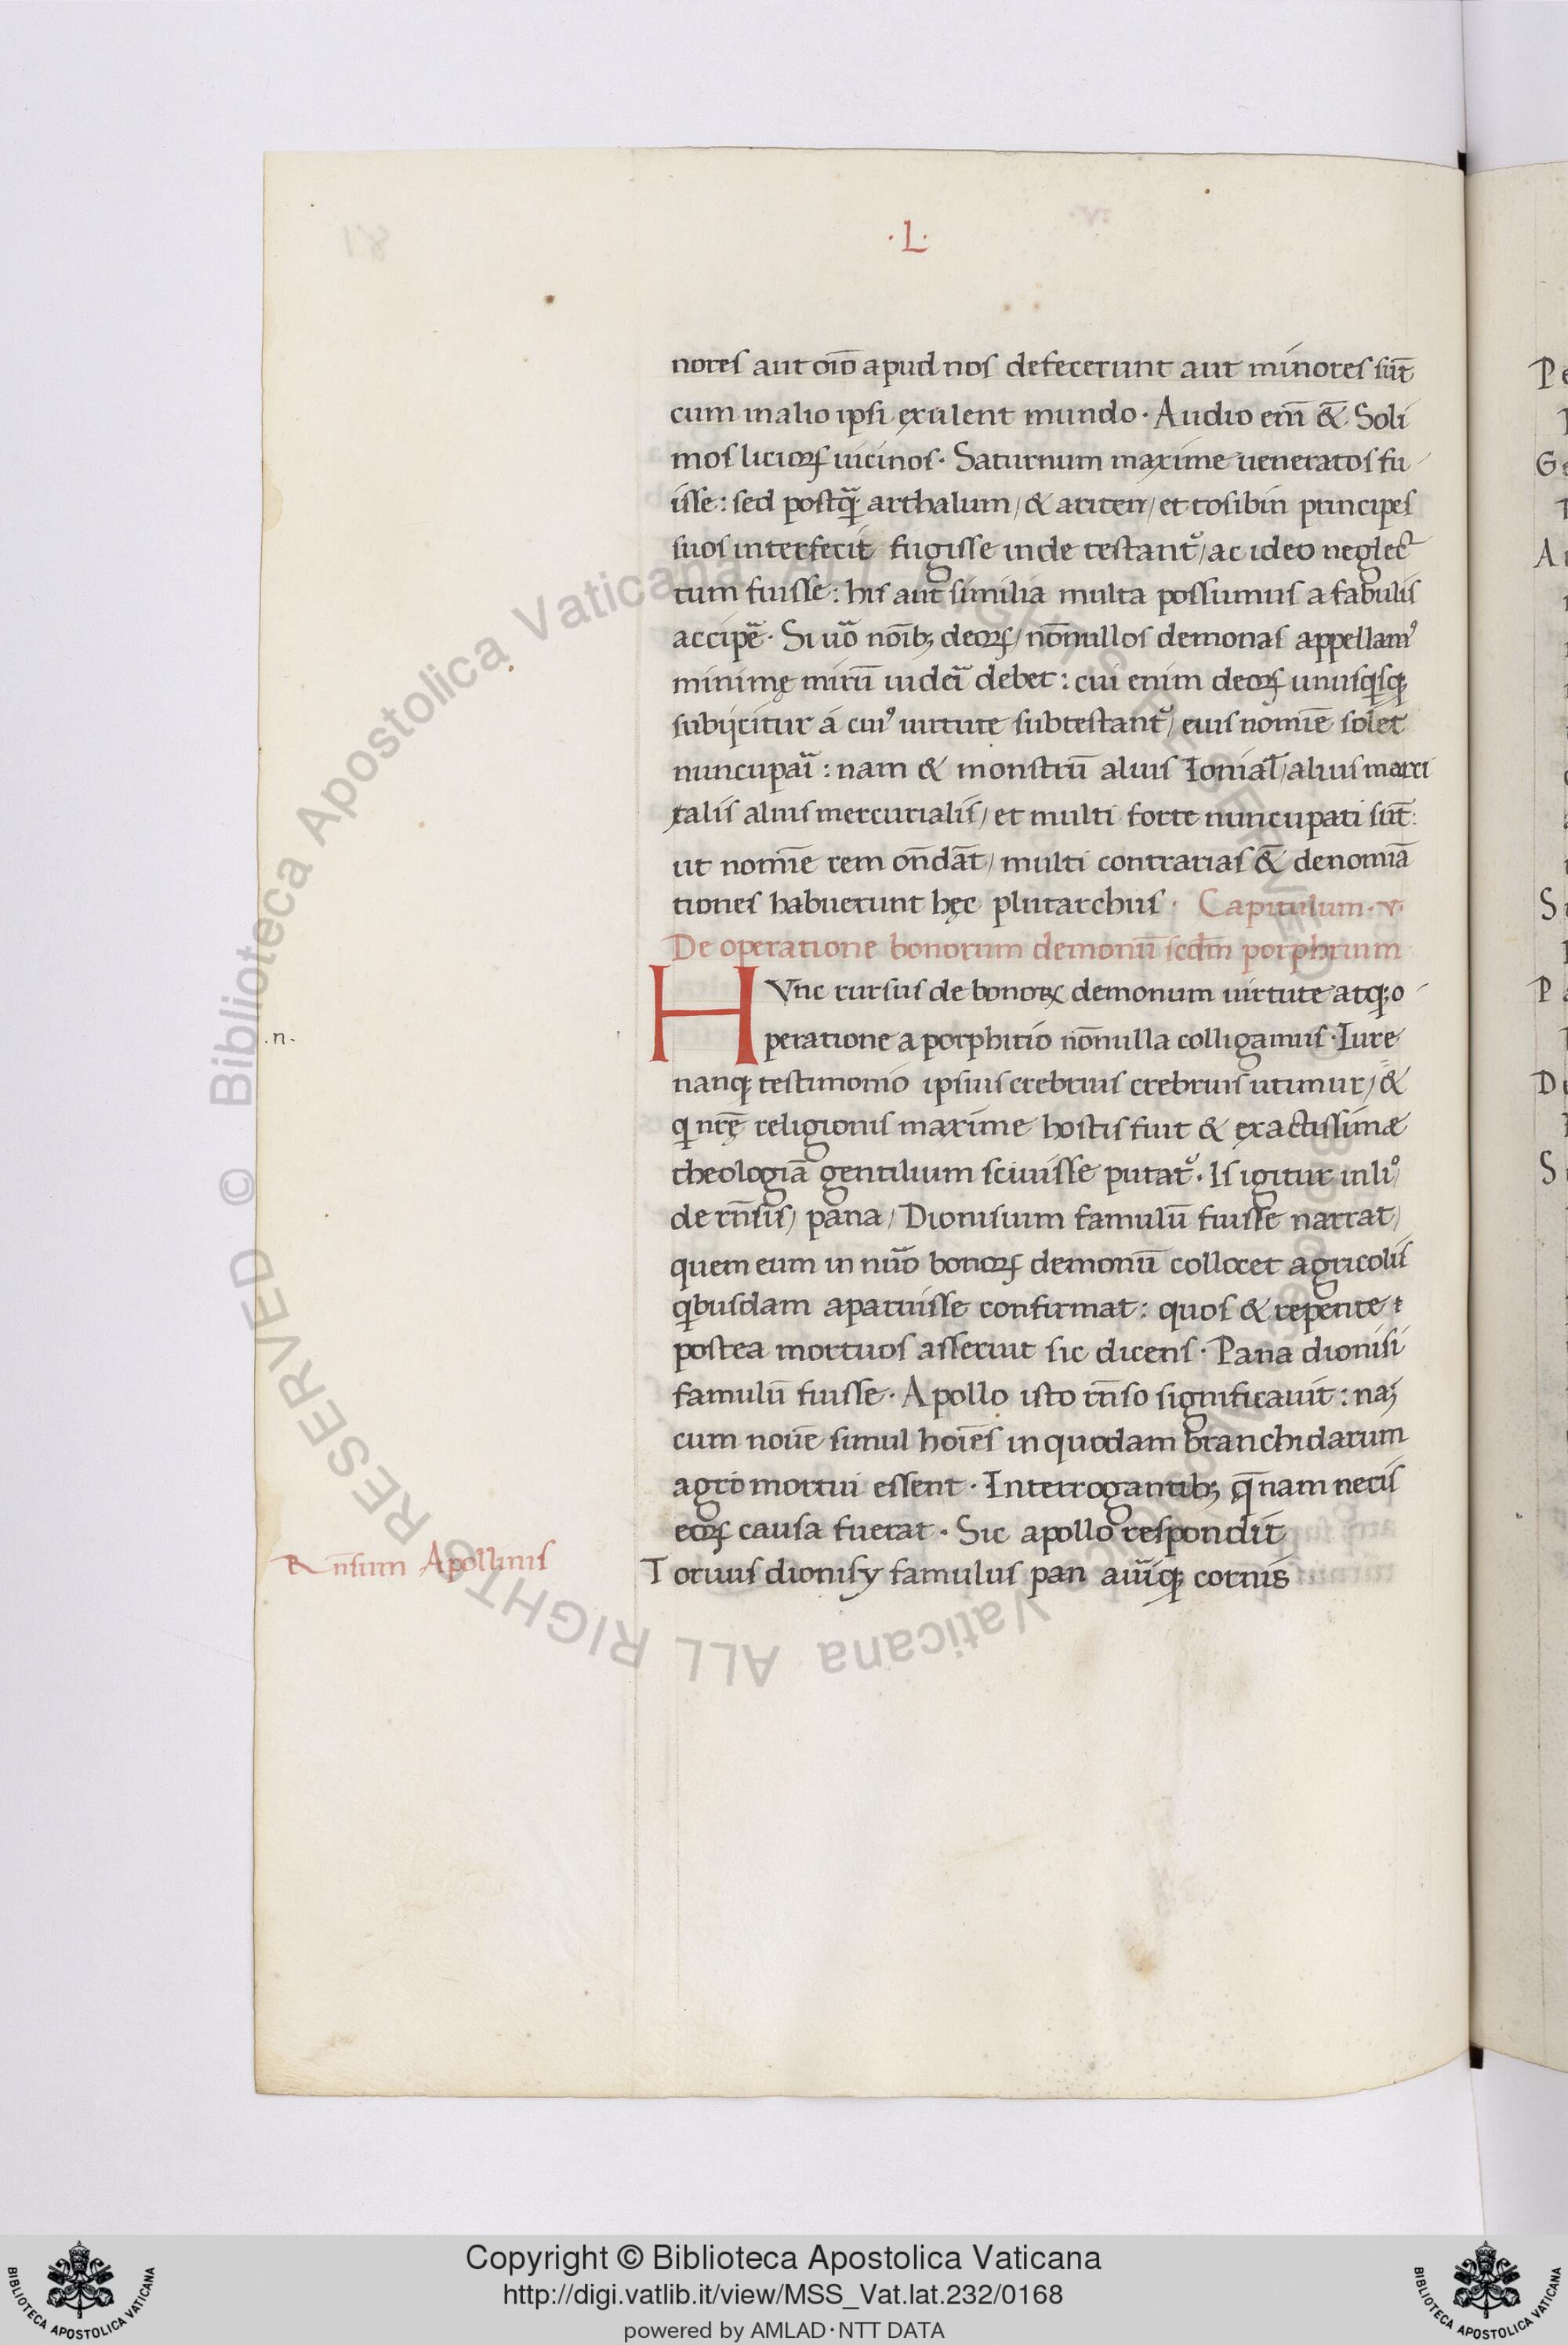 ·L·
nores aut oı̄o apud nos defecerunt aut minores sūt
cum in alio ipsi exulent mundo· Audio enī &̄ Soli
mos licioꝝ uicinos· Saturnum maxime ueneratos fu
isse: sed postq̄ arthalum/ & ariten/ et tosibin principes
suos interfecit fugisse inde testant᷑/ ac ideo neglec
tum fuisse: his aut̄ similia multa possumus a fabulis
accipē· Si uō noı̄bꝫ deoꝝ/ nōnullos demonas appellamꝰ
minimę mirū uideı̄ debet: cui enim deoꝝ unusqisqꝫ
subijcitur á cuiꝰ uirtute subtestant᷑/ eius nomīe solet
nuncupaı̄: nam & monstrū alius Ionial̄/ alius marci
talis alius mercurialis/ et multi forte nuncupati sūt:
ut nomīe rem on̄dāt/ multi contrarias &̄ denomiā
tiones habuerunt hęc plutarchus· Capitulum·v·
De operatione bonorum demonū scdm̄ porphrium
HVnc rursus de bonoꝝ demonum uirtute atqꝫ o
·n· peratione a porphirio nōnulla colligamus· Iure
nanqꝫ testimonio ipsius crebrius crebrius utimur/ &
qͥ nr̄ę religionis maxime hostis fuit & exactissimæ
theologiā gentilium sciuisse putat᷑· Is igitur in liꝰ
de rn̄sis/ pana/ Dionisium famulū fuisse narrat/
quem eum in nūo bonoꝝ demonū collocet agricolis
qͥbusdam aparuisse confirmat: quos & repente
postea mortuos asseruit sic dicens· Pana dionisi
famulū fuisse· Apollo isto rn̄so significauit: naꝫ
cum nouē simul hoı̄es in quodam branchidarum
agro mortui essent· Interrogantibꝫ q̄nam necis
eoꝝ causa fuerat· Sic apollo respondit
Rn̄sum Apollinis
Toruus dionisy famulus pan auı̄qꝫ cornis
Copyright © Biblioteca Apostolica Vaticana
http://digi.vatlib.it/view/MSS_Vat.lat.232/0168
powered by AMLAD·NTT DATA
© Biblioteca Apostolica Vaticana ALL RIGHTS RESERVED
BIBLIOTECA APOSTOLICA VATICANA
BIBLIOTECA APOSTOLICA VATICANA